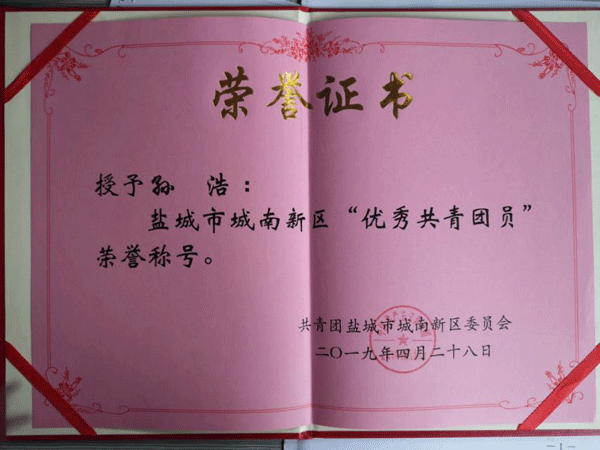 荣誉证书
授予孙 浩：
盐城市城南新区“优秀共青团员”
荣誉称号。
共青团盐城市城南新区委员会
二〇一九年四月二十八日